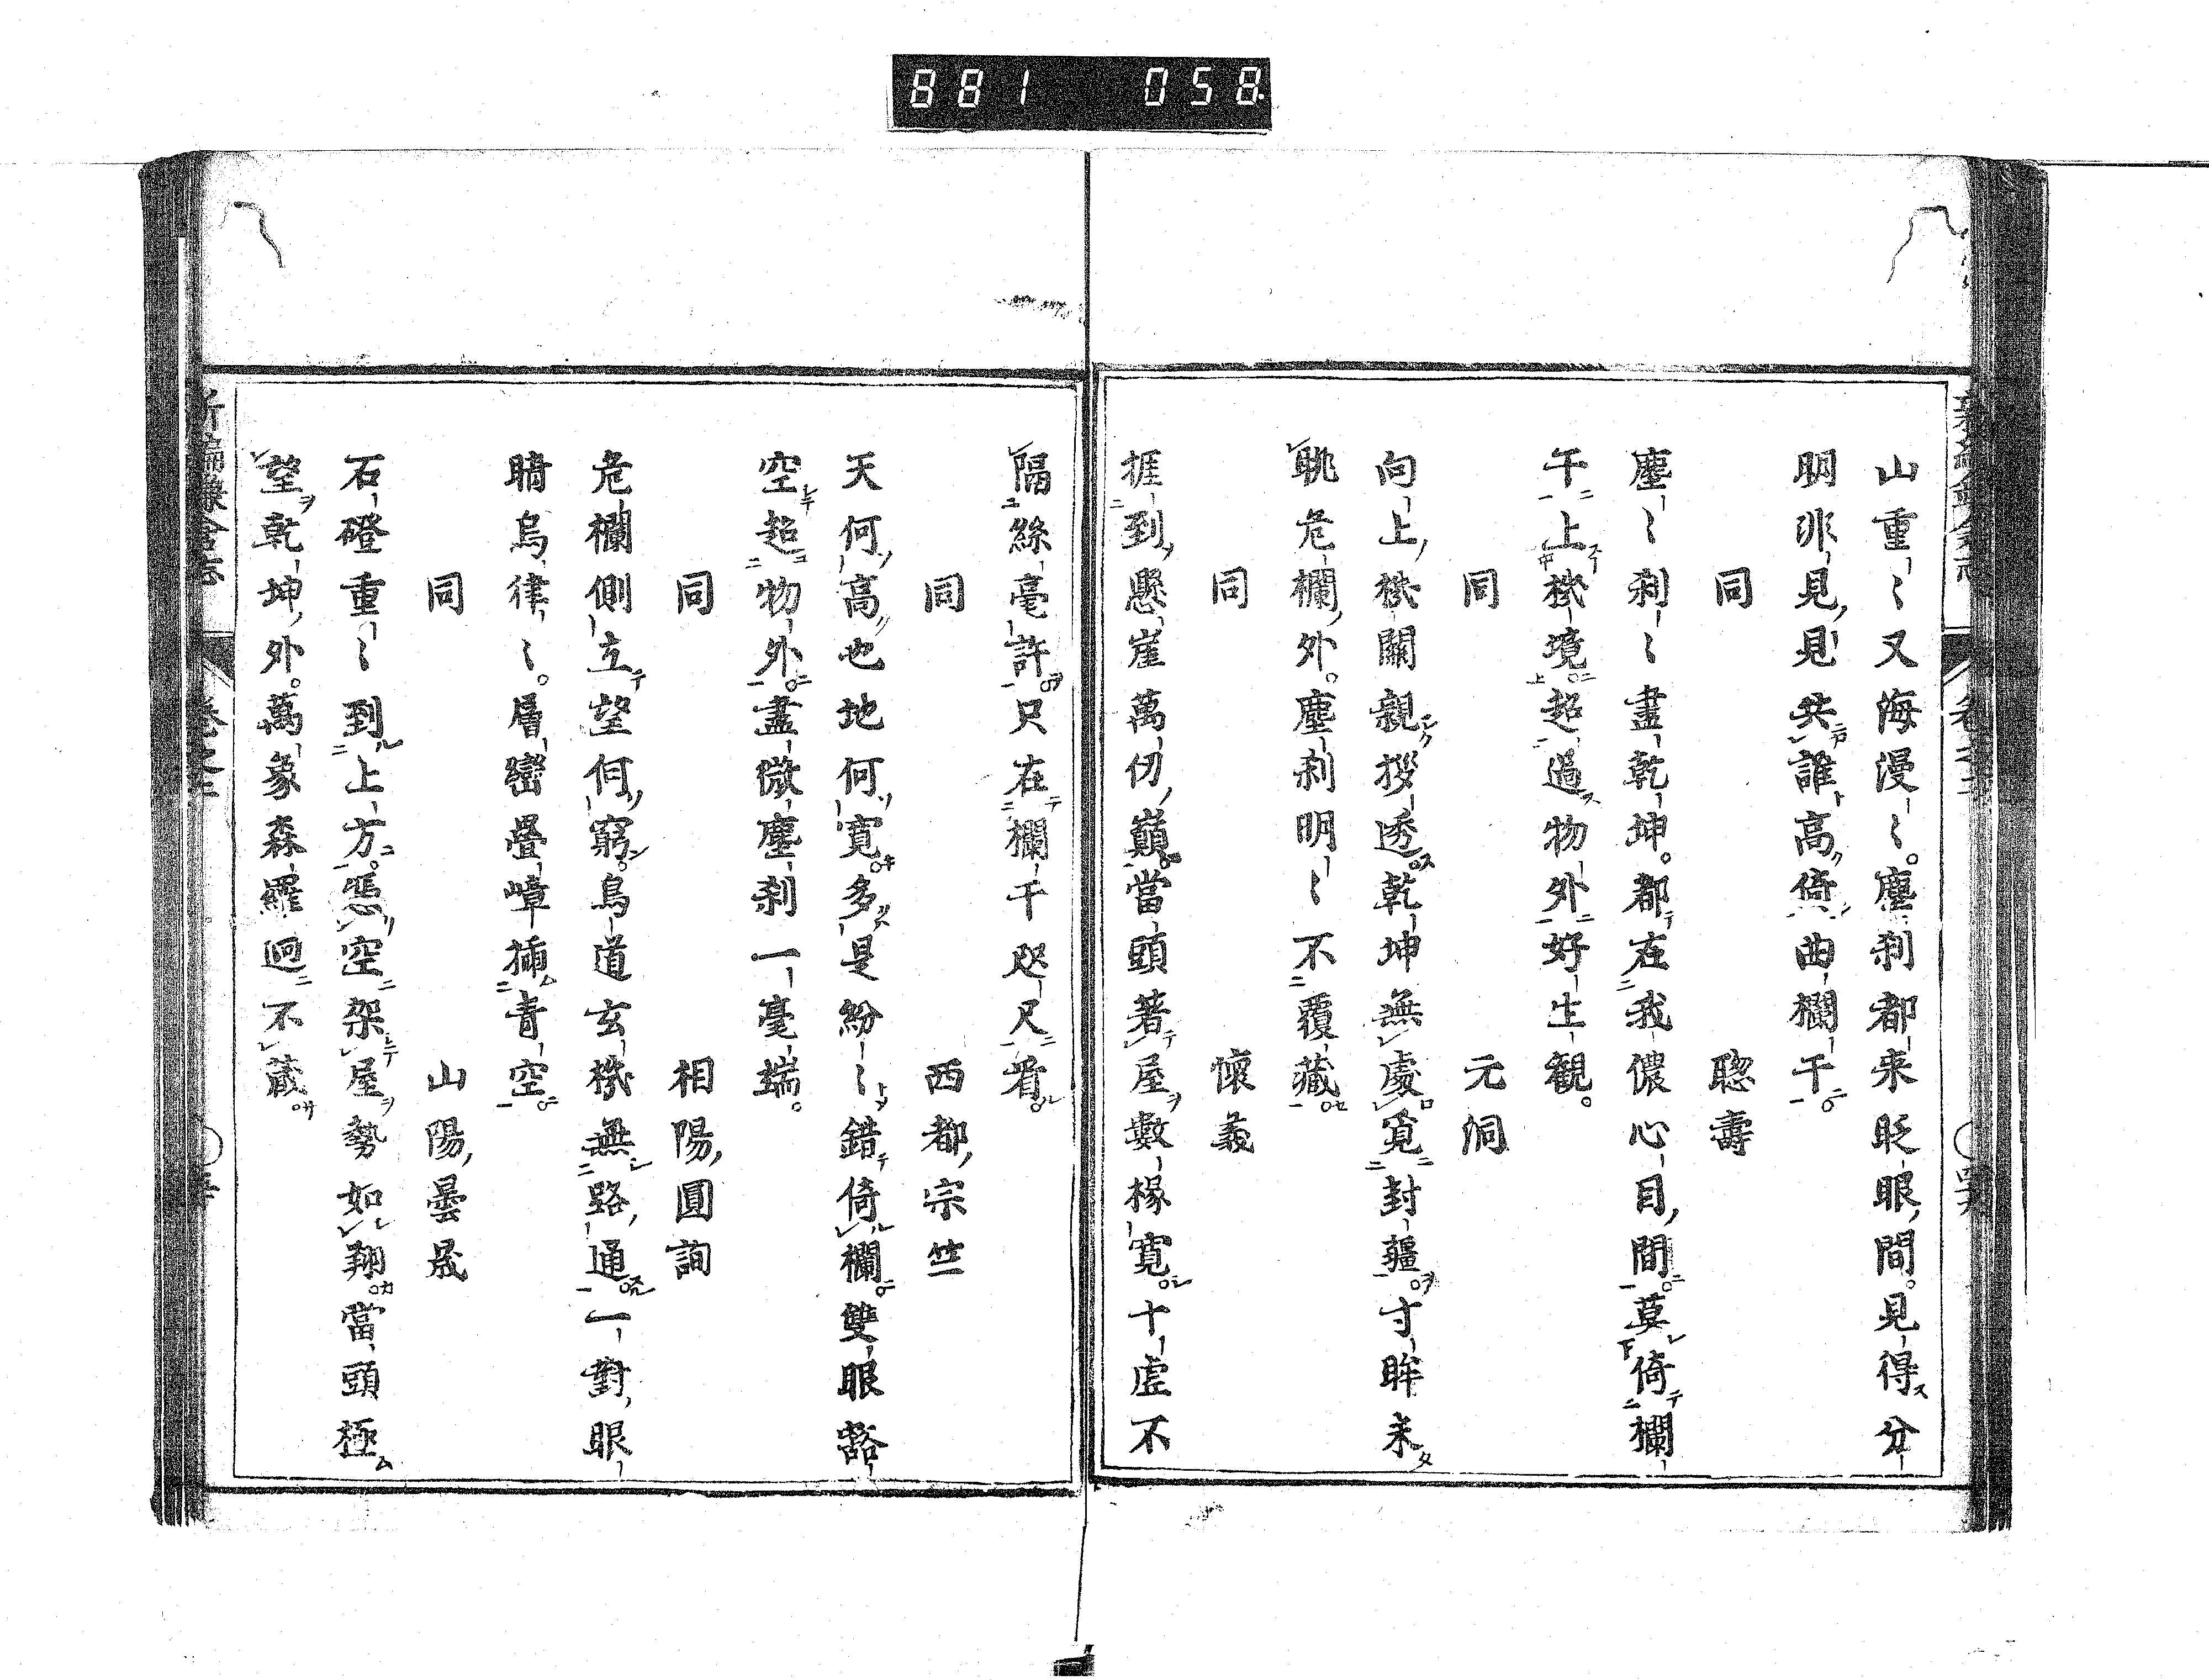 881 058
山重〻又海漫〻。塵刹都来眨眼間。見得分
明非見見共誰高倚曲欄干。
同 聰壽
塵〻刹〻盡乾坤。都在我儂心目間。莫倚欄
干上機境。超過物外好生観。
同 元洞
向上機關親拶透。乾坤無處覓封疆。寸眸来
眺危欄外。塵刹明〻不覆藏。
同 懷義
捱到懸崖萬仞巔。當頭著屋數椽寬。十虚不
隔絲毫許。只在欄干咫尺看。
同 西都宗竺
天何高也地何寛。多是紛〻錯倚欄。雙眼豁
空超物外。盡微塵刹一毫端。
同 相陽圓詢
危欄側立望何窮。鳥道玄機無路通。一對眼
睛烏律〻。層巒疊嶂揷青空。
同 山陽曇晟
石磴重〻到上方。憑空架屋勢如翔。當頭極
望乾坤外。萬象森羅迥不藏。
新編鎌倉志 卷之三